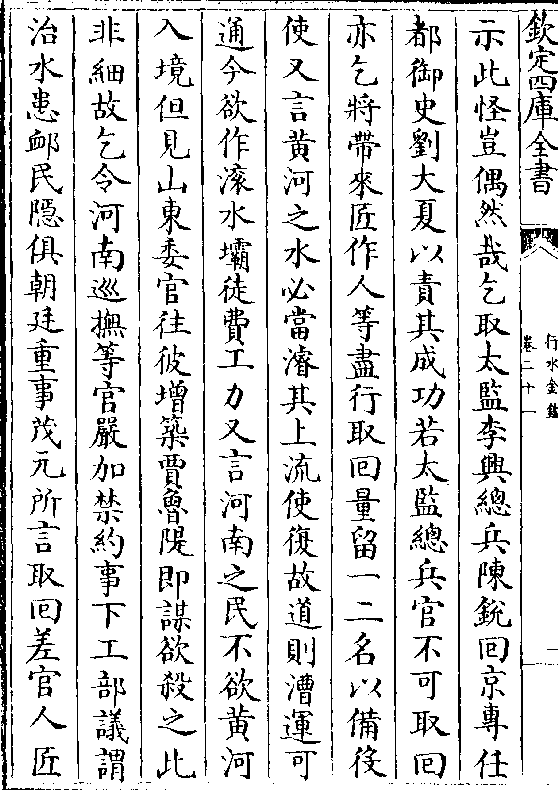 欽定四庫全書
行水金鑑
卷二十一
示此怪豈偶然哉乞取太監李興總兵陳銳回京專任
都御史劉大夏以責其成功若太監總兵官不可取回
亦乞將帶來匠作人等盡行取回量留一二名以備後
使又言黃河之水必當濬其上流使復故道則漕運可
通今欲作滚水壩徒費工力又言河南之民不欲黃河
入境但見山東委官往彼增築賈魯隄即謀欲殺之此
非細故乞令河南巡撫等官嚴加禁約事下工部議謂
治水患卹民隱俱朝廷重事茂元所言取回差官人匠